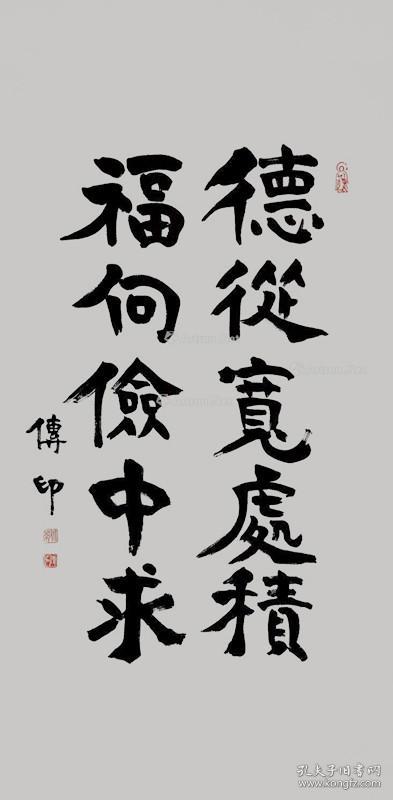 德從寬處積
福向儉中求
傳印
孔夫子旧书网
www.kongfz.com